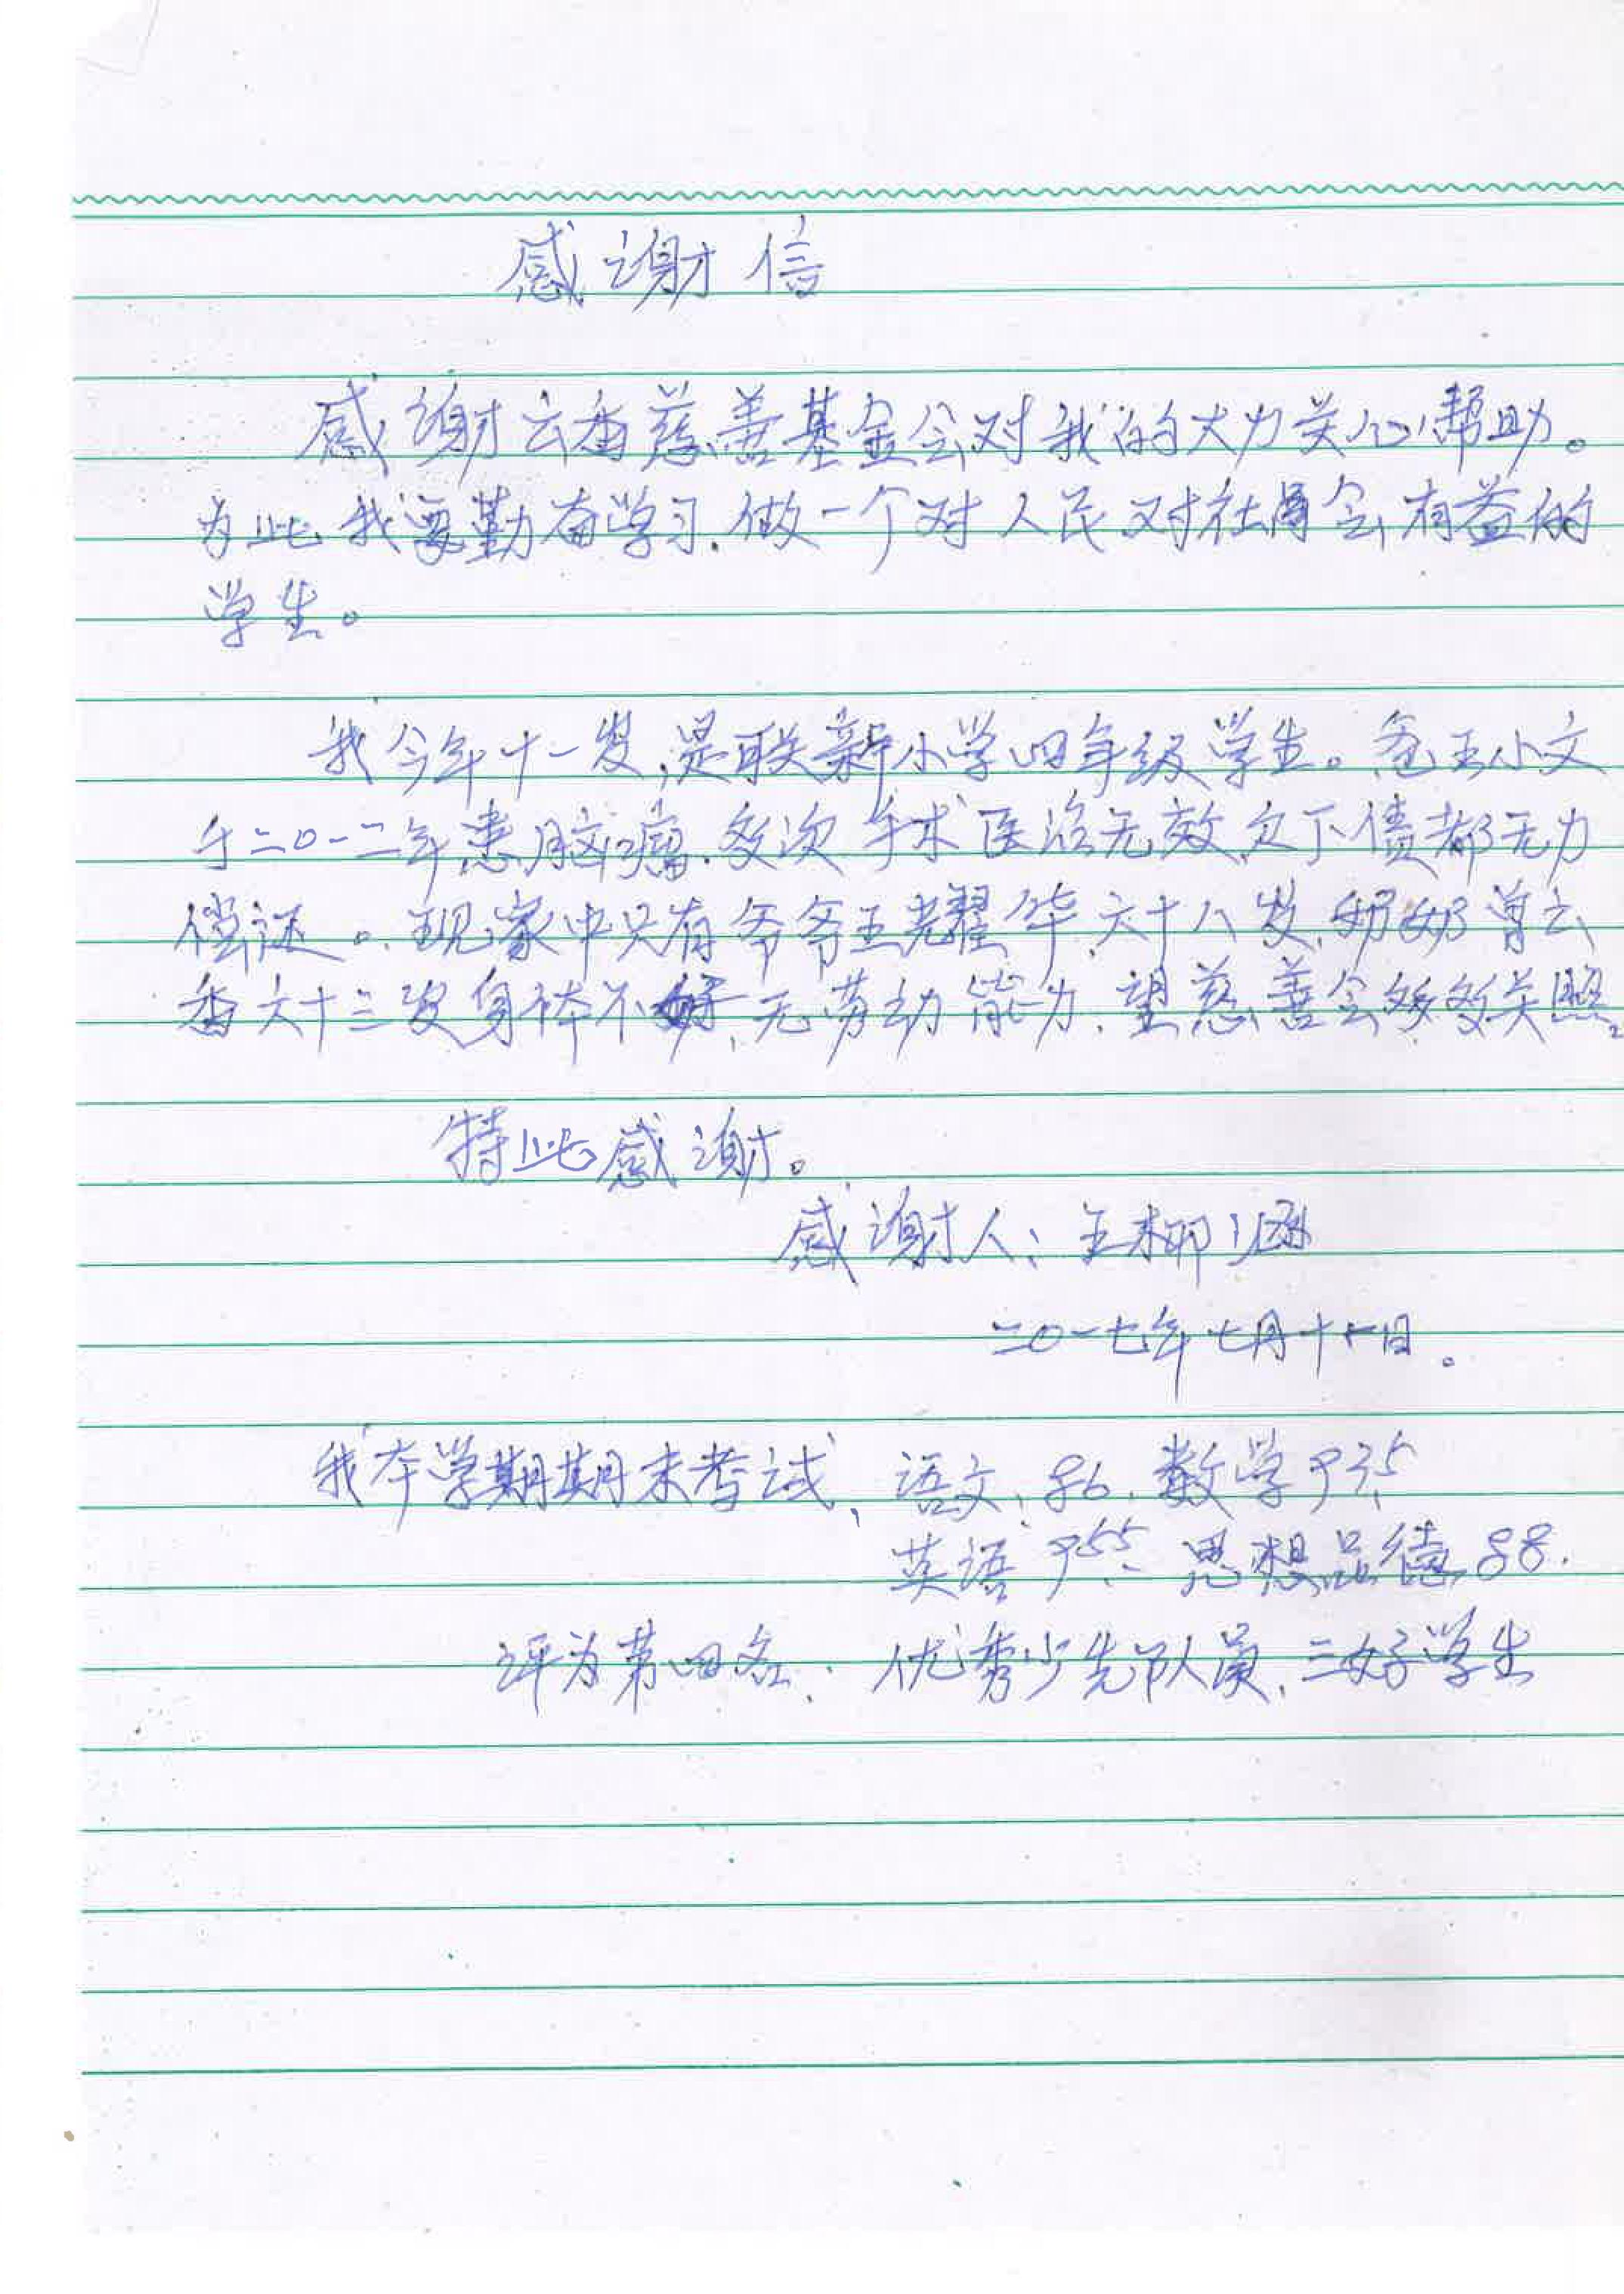 感谢信
感谢云香慈善基金会对我的大力关心帮助。
为此我要勤奋学习.做一个对人民对社会有益的
学生。
我今年十一岁,是联新小学四年级学生。爸王小文
于二〇一二年患脑瘤.多次手术医治无效,欠下债都无力
偿还。现家中只有爷爷王耀华,六十八岁,奶奶曾云
香六十三岁身体不好,无劳动能力,望慈善会多多关照。
特此感谢。
感谢人:王柳涵
二〇一七年七月十 日。
我本学期期末考试,语文:86.数学93.5
英语95.5.思想品德88.
评为第四名.优秀少先队员,三好学生